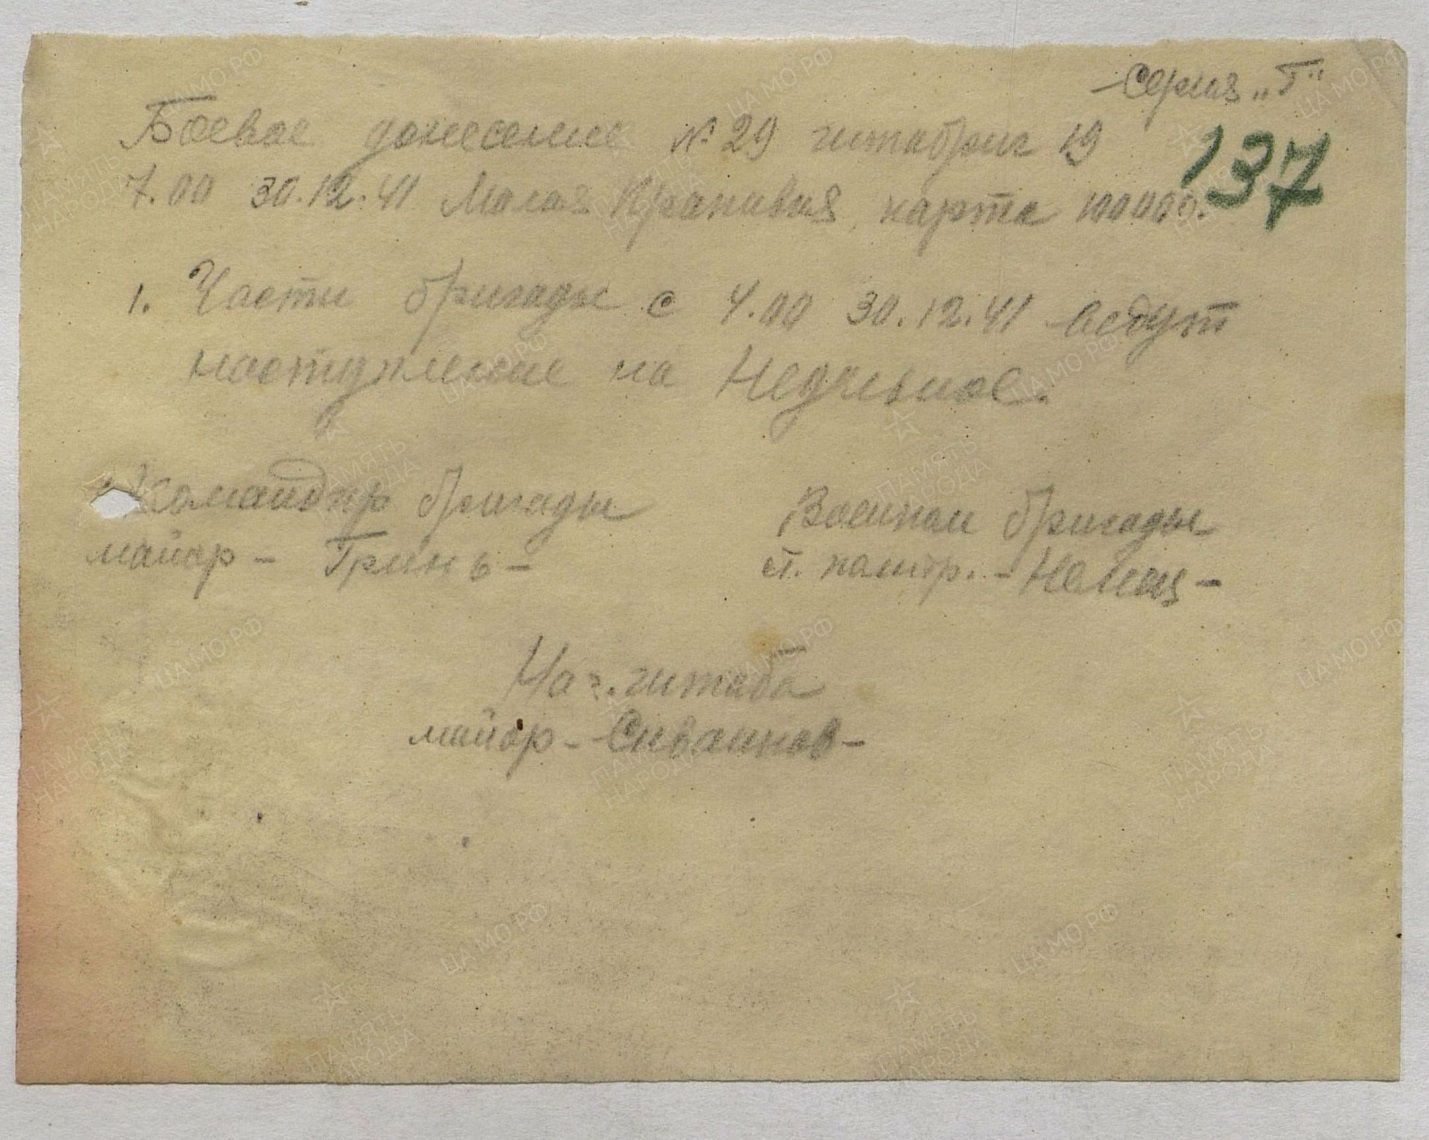 серия „Г"
137
Боевое донесение № 29 штабриг 19
7.00 30.12.41 Малая Крапивня, карта 100000.
1. Части бригады с 4.00 30.12.41 ведут
наступление на Недельное.
Командир бригады
майор - Гринь -
Военком бригады
ст. политр. - Немец -
Нач. штаба
майор -